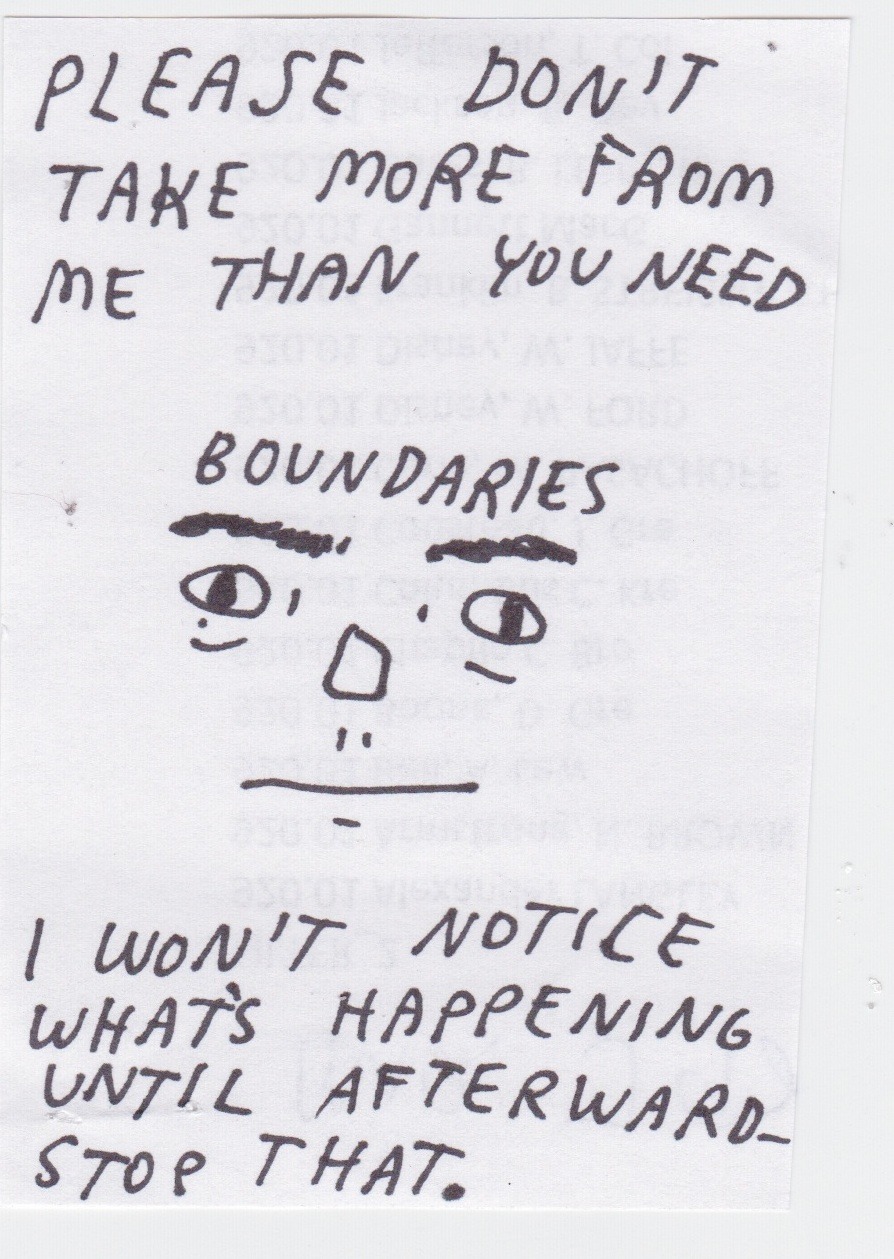 PLEASE DON'T
TAKE MORE FROM
ME THAN YOU NEED
BOUNDARIES
I WON'T NOTICE
WHAT'S HAPPENING
UNTIL AFTERWARD-
STOP THAT.